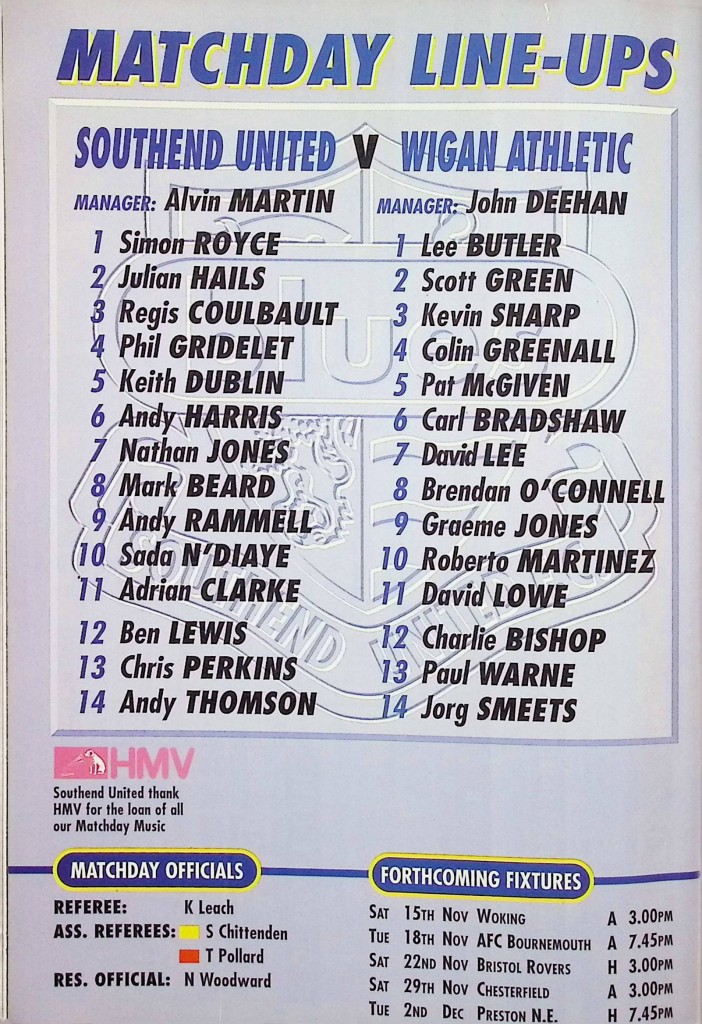 MATCHDAY LINE-UPS
SOUTHEND UNITED V WIGAN ATHLETIC
MANAGER: Alvin MARTIN
1 Simon ROYCE
2 Julian HAILS
3 Regis COULBAULT
4 Phil GRIDELET
5 Keith DUBLIN
6 Andy HARRIS
7 Nathan JONES
8 Mark BEARD
9 Andy RAMMELL
10 Sada N'DIAYE
11 Adrian CLARKE
12 Ben LEWIS
13 Chris PERKINS
14 Andy THOMSON
MANAGER: John DEEHAN
1 Lee BUTLER
2 Scott GREEN
3 Kevin SHARP
4 Colin GREENALL
5 Pat McGIVEN
6 Carl BRADSHAW
7 David LEE
8 Brendan O'CONNELL
9 Graeme JONES
10 Roberto MARTINEZ
11 David LOWE
12 Charlie BISHOP
13 Paul WARNE
14 Jorg SMEETS
blues
SOUTHEND UNITED F.C.
HMV
Southend United thank
HMV for the loan of all
our Matchday Music
MATCHDAY OFFICIALS
REFEREE: K Leach
ASS. REFEREES: S Chittenden
T Pollard
RES. OFFICIAL: N Woodward
FORTHCOMING FIXTURES
SAT 15TH NOV WOKING A 3.00PM
TUE 18TH NOV AFC BOURNEMOUTH A 7.45PM
SAT 22ND NOV BRISTOL ROVERS H 3.00PM
SAT 29TH NOV CHESTERFIELD A 3.00PM
TUE 2ND DEC PRESTON N.E. H 7.45PM